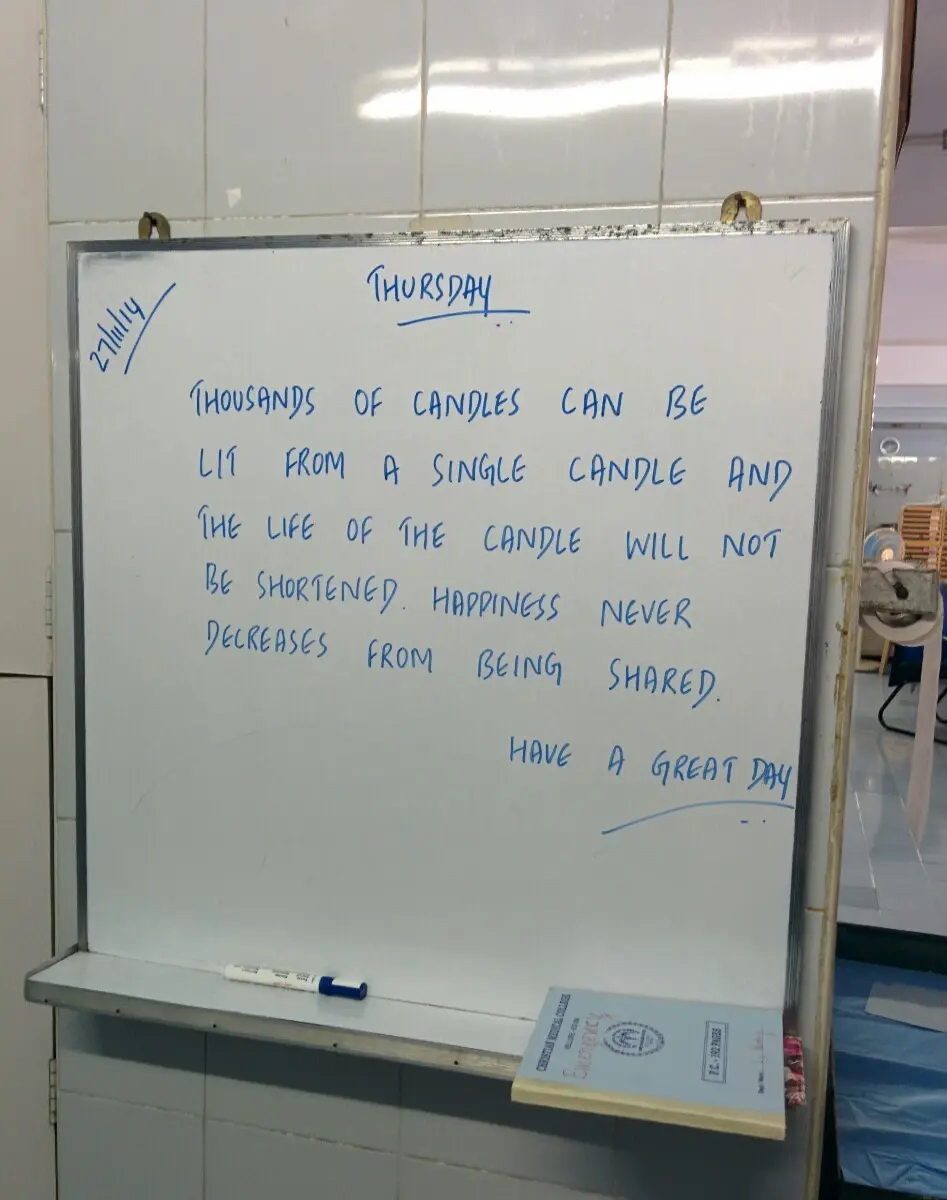 THURSDAY
27/11/14
THOUSANDS OF CANDLES CAN BE
LIT FROM A SINGLE CANDLE AND
THE LIFE OF THE CANDLE WILL NOT
BE SHORTENED. HAPPINESS NEVER
DECREASES FROM BEING SHARED.
HAVE A GREAT DAY
CHRISTIAN MEDICAL COLLEGE
Emergency
F.C. - 192 PAGES